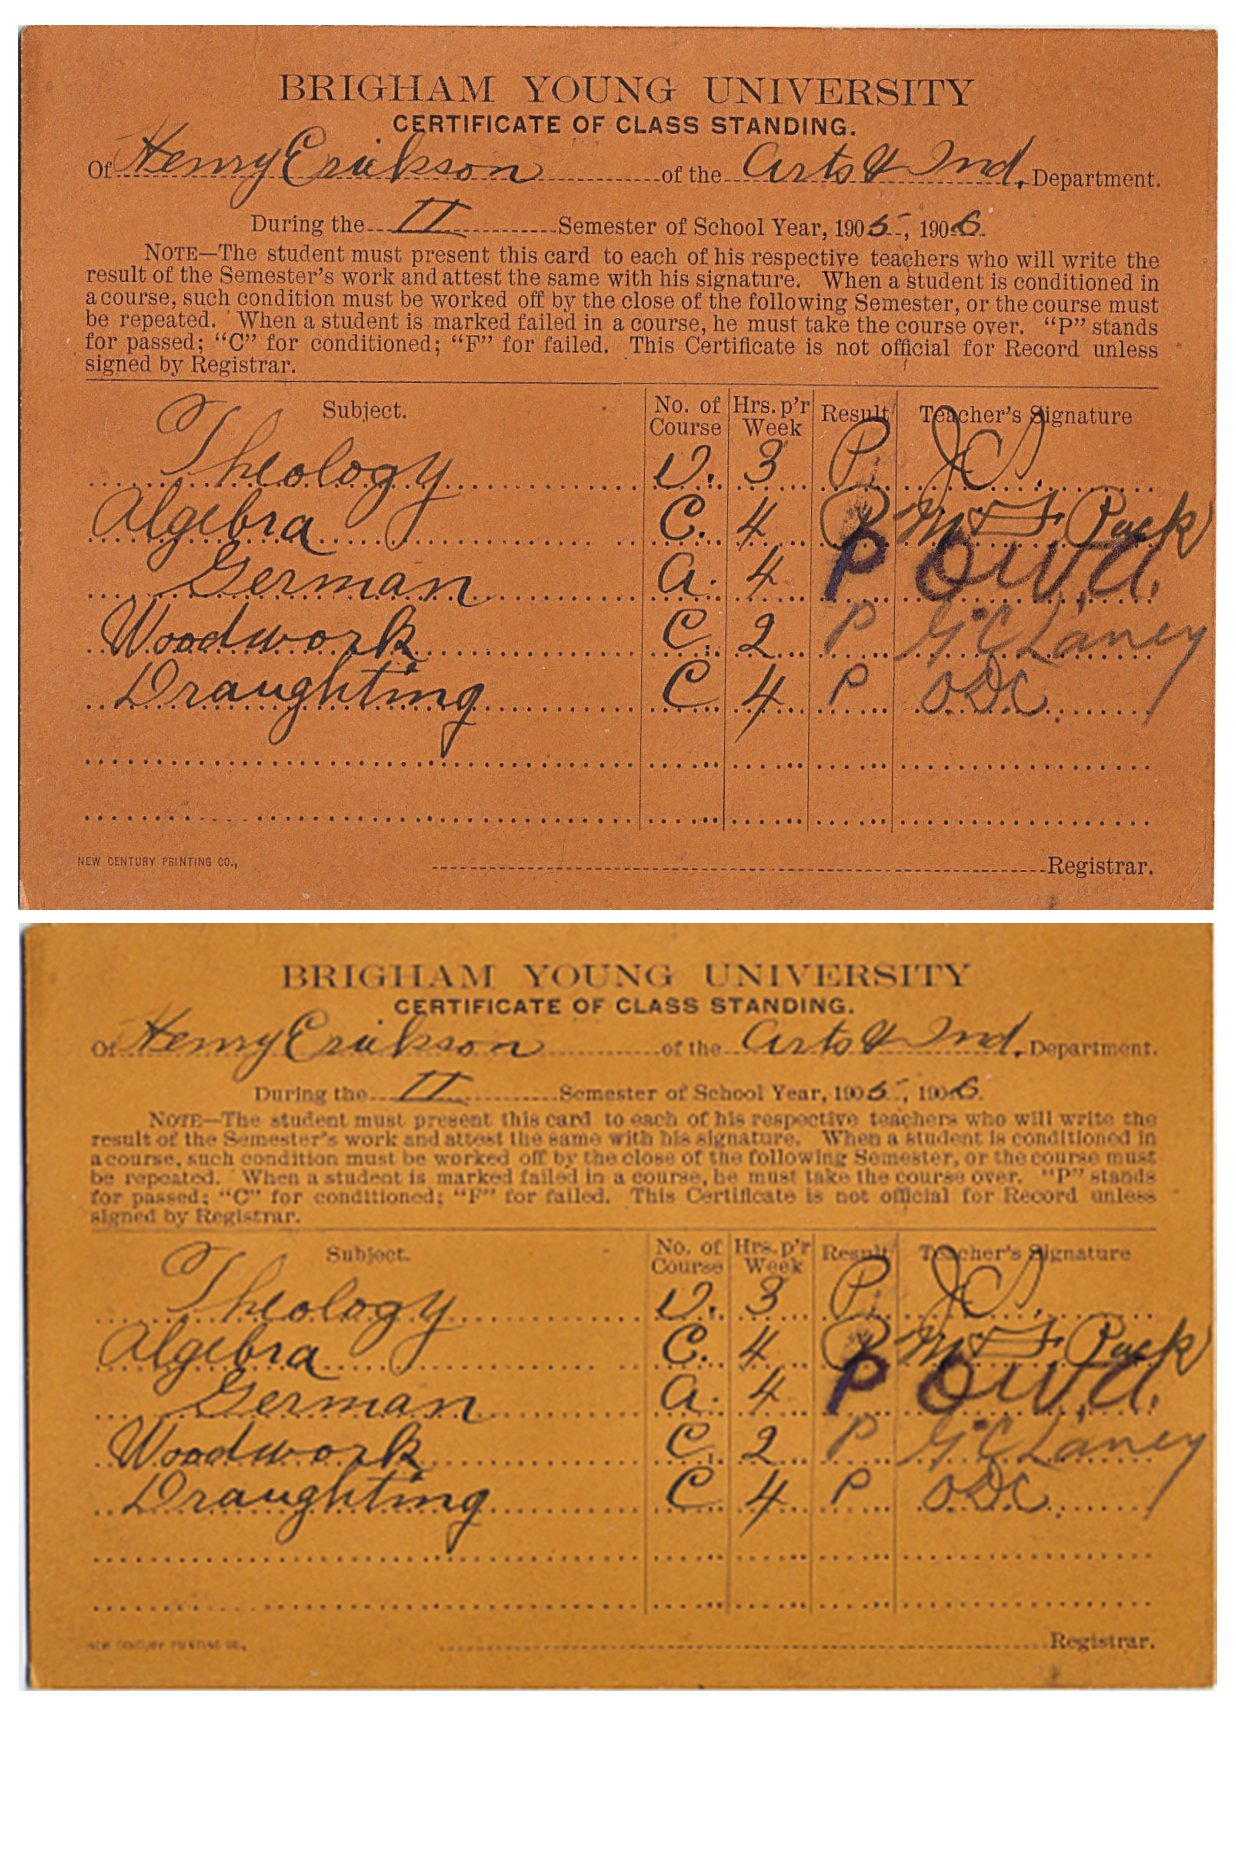 BRIGHAM YOUNG UNIVERSITY
CERTIFICATE OF CLASS STANDING.
Of Henry Erickson of the Arts & Ind. Department.
During the II Semester of School Year, 1905, 1906.
NOTE—The student must present this card to each of his respective teachers who will write the
result of the Semester's work and attest the same with his signature. When a student is conditioned in
a course, such condition must be worked off by the close of the following Semester, or the course must
be repeated. When a student is marked failed in a course, he must take the course over. "P" stands
for passed; "C" for conditioned; "F" for failed. This Certificate is not official for Record unless
signed by Registrar.
Subject. No. of Course Hrs. p'r Week Result Teacher's Signature
Theology D. 3 P.
Algebra C. 4 P
German A. 4 P O.W.A.
Woodwork C. 2 P G C Laney
Draughting C 4 P O.D.C.
NEW CENTURY PRINTING CO., Registrar.
BRIGHAM YOUNG UNIVERSITY
CERTIFICATE OF CLASS STANDING.
Of Henry Erickson of the Arts & Ind. Department.
During the II Semester of School Year, 1905, 1906.
NOTE—The student must present this card to each of his respective teachers who will write the
result of the Semester's work and attest the same with his signature. When a student is conditioned in
a course, such condition must be worked off by the close of the following Semester, or the course must
be repeated. When a student is marked failed in a course, he must take the course over. "P" stands
for passed; "C" for conditioned; "F" for failed. This Certificate is not official for Record unless
signed by Registrar.
Subject. No. of Course Hrs. p'r Week Result Teacher's Signature
Theology D. 3 P.
Algebra C. 4 P
German A. 4 P O.W.A.
Woodwork C. 2 P G C Laney
Draughting C 4 P O.D.C.
NEW CENTURY PRINTING CO., Registrar.